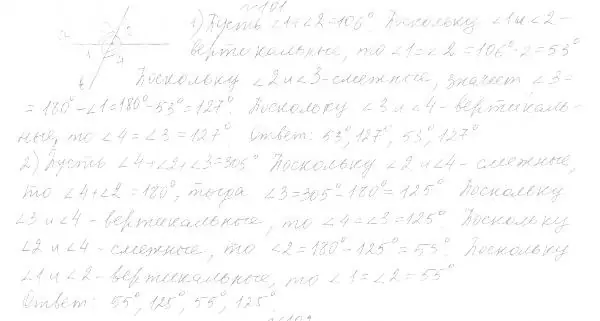 №101
1) Пусть ∠1+∠2=106°. Поскольку ∠1 и ∠2 –
вертикальные, то ∠1=∠2=106°:2=53°
Поскольку ∠2 и ∠3-смежные, значит ∠3=
=180°-∠1=180°-53°=127°. Поскольку ∠3 и ∠4 - вертикаль-
ные, то ∠4=∠3=127°. Ответ: 53°, 127°, 53°, 127°
2) Пусть ∠4+∠2+∠3=305° Поскольку ∠2 и ∠4 - смежные,
то ∠4+∠2=180°, тогда ∠3=305°-180°=125° Поскольку
∠3 и ∠4 - вертикальные, то ∠4=∠3=125°. Поскольку
∠2 и ∠4 - смежные, то ∠2=180°-125°=55°. Поскольку
∠1 и ∠2 - вертикальные, то ∠1=∠2=55°
Ответ: 55°, 125°, 55°, 125°.